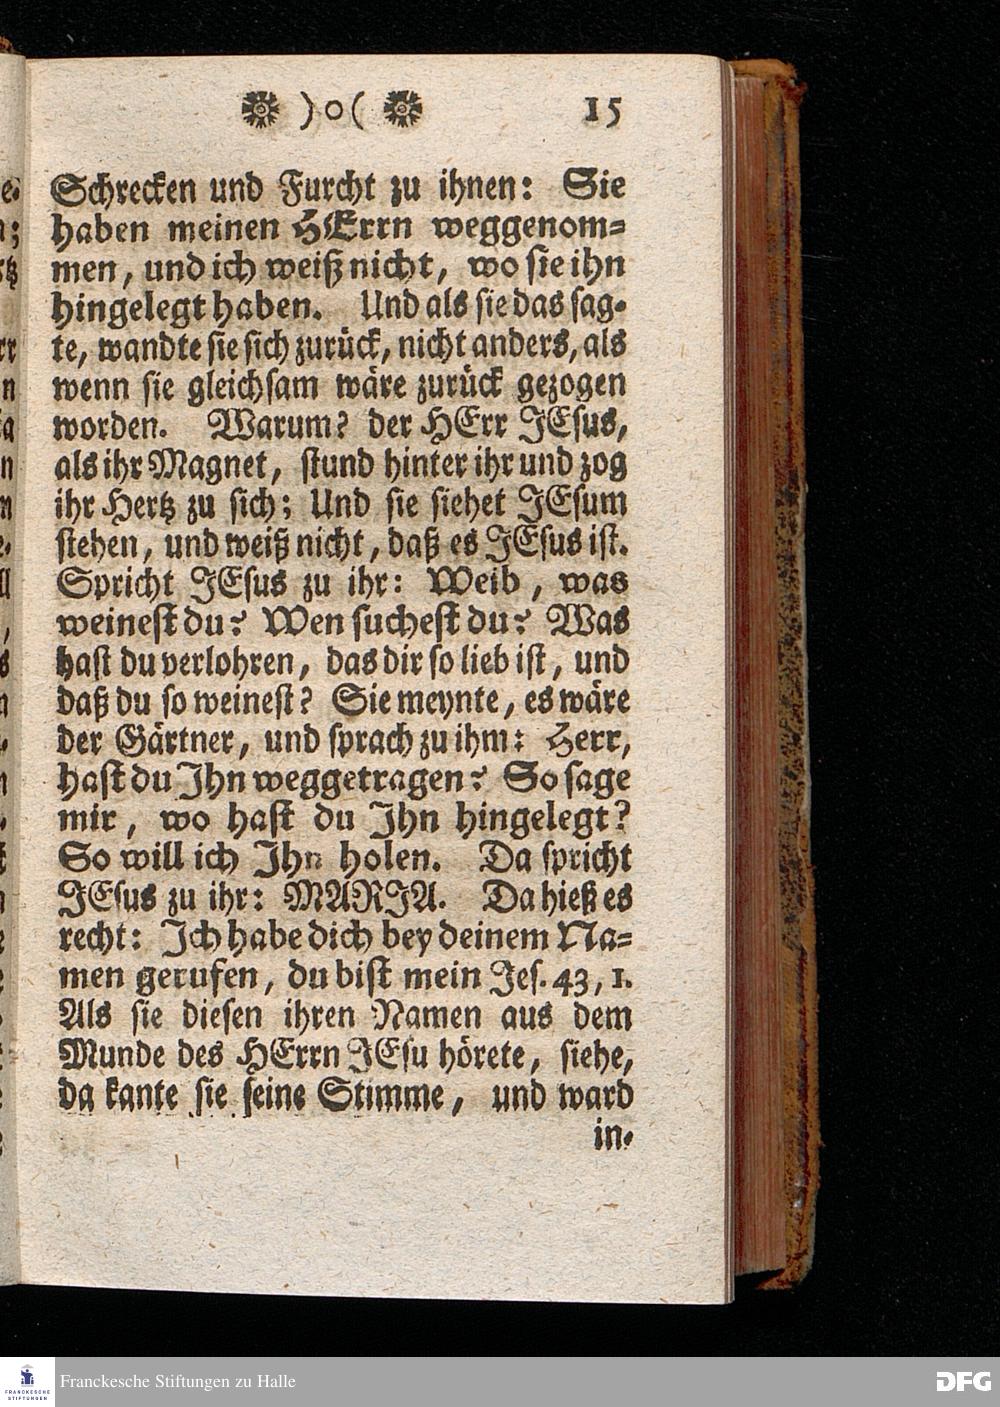 )o( 15
Schrecken und Furcht zu ihnen: Sie
haben meinen HErrn weggenom=
men, und ich weiß nicht, wo sie ihn
hingelegt haben. Und als sie das sag=
te, wandte sie sich zurück, nicht anders, als
wenn sie gleichsam wäre zurück gezogen
worden. Warum? der HErr JEsus,
als ihr Magnet, stund hinter ihr und zog
ihr Hertz zu sich; Und sie siehet JEsum
stehen, und weiß nicht, daß es JEsus ist.
Spricht JEsus zu ihr: Weib, was
weinest du? Wen suchest du? Was
hast du verlohren, das dir so lieb ist, und
daß du so weinest? Sie meynte, es wäre
der Gärtner, und sprach zu ihm: Herr,
hast du Ihn weggetragen? So sage
mir, wo hast du Ihn hingelegt?
So will ich Ihn holen. Da spricht
JEsus zu ihr: MARJA. Da hieß es
recht: Ich habe dich bey deinem Na=
men gerufen, du bist mein Jes. 43, 1.
Als sie diesen ihren Namen aus dem
Munde des HErrn JEsu hörete, siehe,
da kante sie seine Stimme, und ward
in=
FRANCKESCHE
STIFTUNGEN
Franckesche Stiftungen zu Halle
DFG